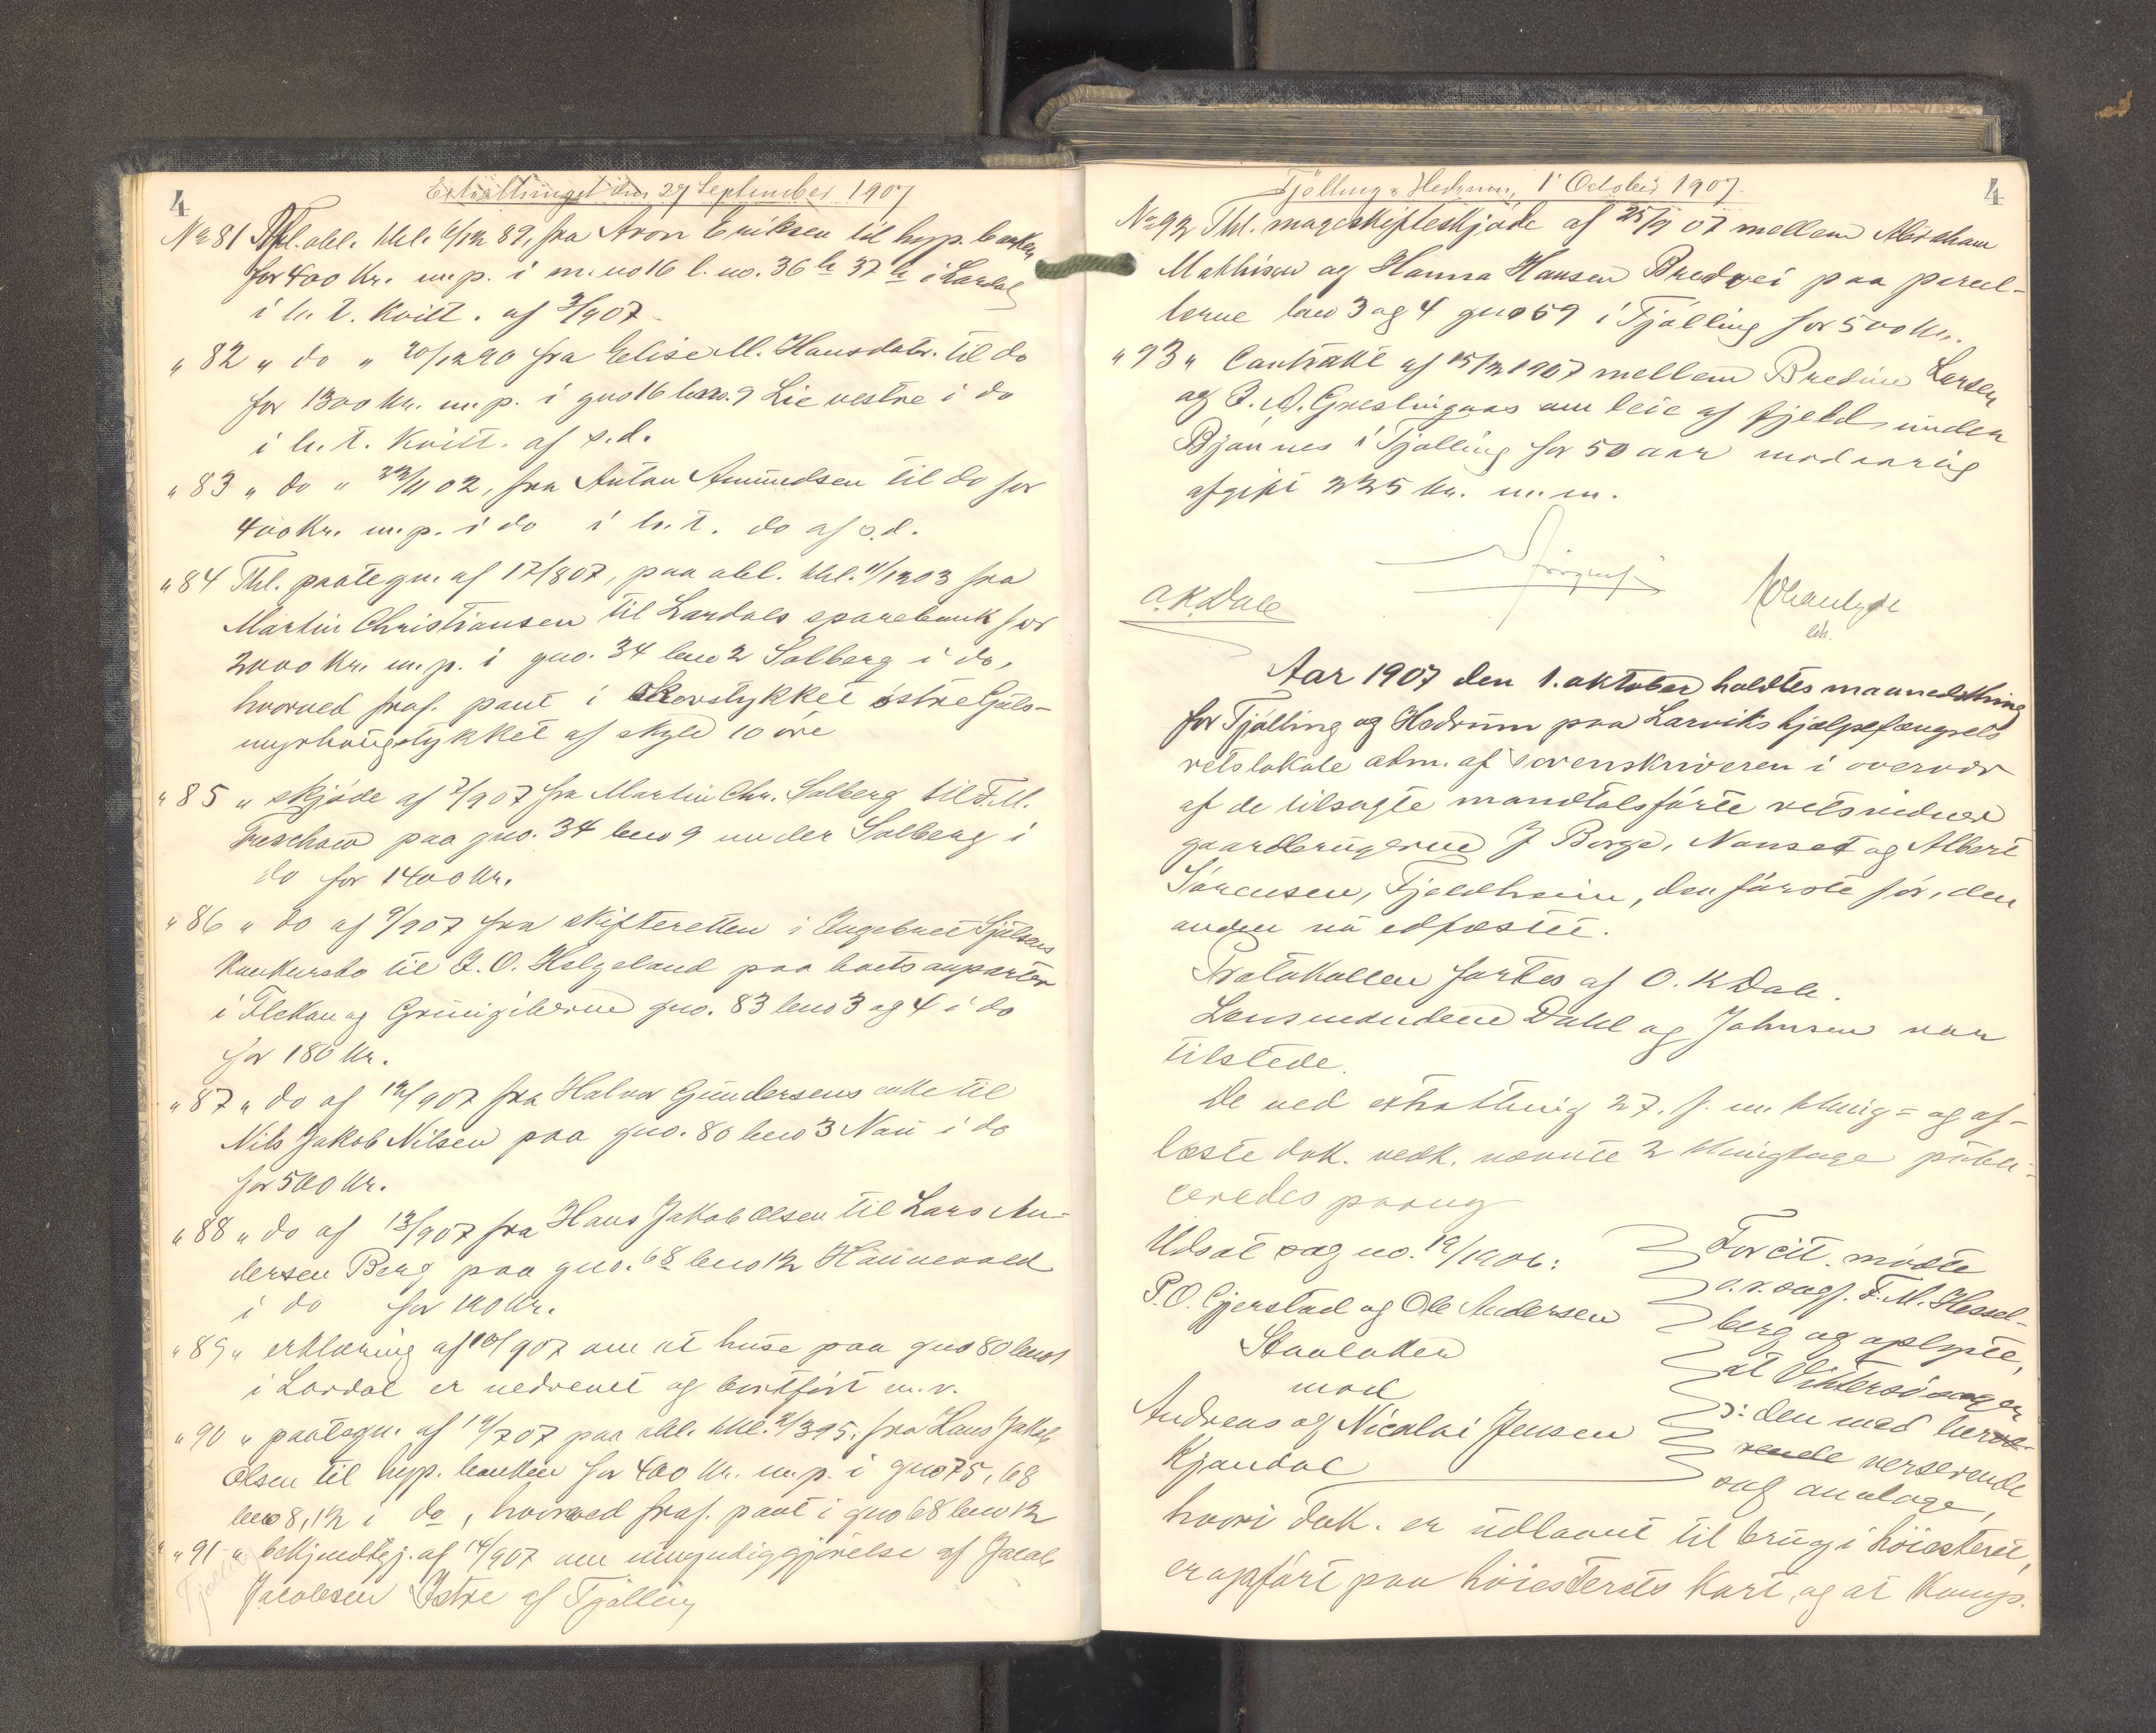 4
Extrattinget den 27 September 1907
No 81 Thl. obl. thl. 6/12 89, fra Aron Eriksen til hyp. banken
for 400 Kr. m. p. i m. no 16 l. no. 36 b 37 b i Lardal
i h. t. kvitt. af 3/9 07
" 82 " do " 20/12 90 fra Elise M. Hansdatr. til do
for 1300 Kr. m. p. i gno 16 bno. 9 Lie vestre i do
i h. t. kvitt. af s. d.
" 83 " do " 22/11 02, fra Anton Amundsen til do for
400 Kr. m. p. i do i h. t. do af s. d.
" 84 Thl. paategn. af 17/8 07, paa obl. thl. 11/12 03 fra
Martin Christiansen til Lardals sparebank for
2000 Kr. m. p. i gno. 34 bno 2 Solberg i do,
hvorved fraf. pant i skovstykket östre Gjuls-
myrhaugstykket af skyld 10 öre
" 85 " skjöde af 7/9 07 fra Martin Chr. Solberg til F. M.
Treschow paa gno. 34 bno 9 under Solberg i
do for 1400 Kr.
" 86 " do af 9/9 07 fra skifteretten i Engebret Sjulsens
konkursbo til J. O. Helgeland paa boets anparter
i Flekan og gno. 83 bno 3 og 4 i do
for 180 Kr.
" 87 " do af 12/9 07 fra Halvor Gundersens enke til
Nils Jakob Nilsen paa gno. 80 bno 3 Nau i do
for 500 Kr.
" 88 " do af 13/9 07 fra Hans Jakob Olsen til Lars An-
dersen Berg paa gno. 68 bno 12 Hannevold
i do for 100 Kr.
" 89 " erklæring af 10/9 07 om at huse paa gno 80 bno 1
i Lardal er nedrevet og bortfört m. v.
" 90 " paategn. af 19/7 07 paa obl. thl. 2/3 95, fra Hans Jakob
Olsen til hyp. banken for 400 Kr. m. p. i gno 75, 68
bno 8, 12 i do, hvorved fraf. pant i gno 68 bno 12
" 91 " bekjendtgj. af 14/9 07 om umyndiggjörelse af Jacob
Jacobsen Istre af Tjölling
Tjölling
4
Tjölling & Hedrum, 1 October 1907.
No 92 Thl. mageskifteskjöde af 25/9 07 mellem Abraham
Mathisen og Hanna Hansen Bredvei paa parcel-
lerne bno 3 og 4 gno 59 i Tjölling for 500 Kr.
" 93 " Contrakt af 15/2 1907 mellem Bredine Larsen
og J. A. Greslingaas om leie af fjeld under
Bjönnes i Tjölling for 50 aar mod aarlig
afgift 225 Kr. m. m.
O. K. Dale
Aar 1907 den 1. oktober holdtes maanedsthing
for Tjölling og Hedrum paa Larviks hjælpefængsels
retslokale adm. af sorenskriveren i overvær
af de tilsagte mandtalsförte retsvidner
gaardbrugerne J Borge, Nanset og Albert
Sörensen, Fjeldheim, den förste för, den
anden nu edfæstet.
Protokollen förtes af O. K Dale.
Lensmændene Dahl og Johnsen var
tilstede.
De ved extrathing 27. f. m. thing= og af-
læste dok. vedk. nævnte 2 thinglage publi-
ceredes paany
Udsat sag no. 19/1906:
P. O. Gjerstad og Ole Andersen
Staalaker
mod
Andreas og Nicolai Jensen
Kjøndal
For cit. mødte
o. r. sagf. F. M. Hessel-
berg og oplyste,
at Vittersösagen
ɔ: den med nærvæ-
rende verserende
sag analoge,
hvori dok. er udlaant til brug i höiesteret,
er opfört paa höiesterets Kart, og at Komp.